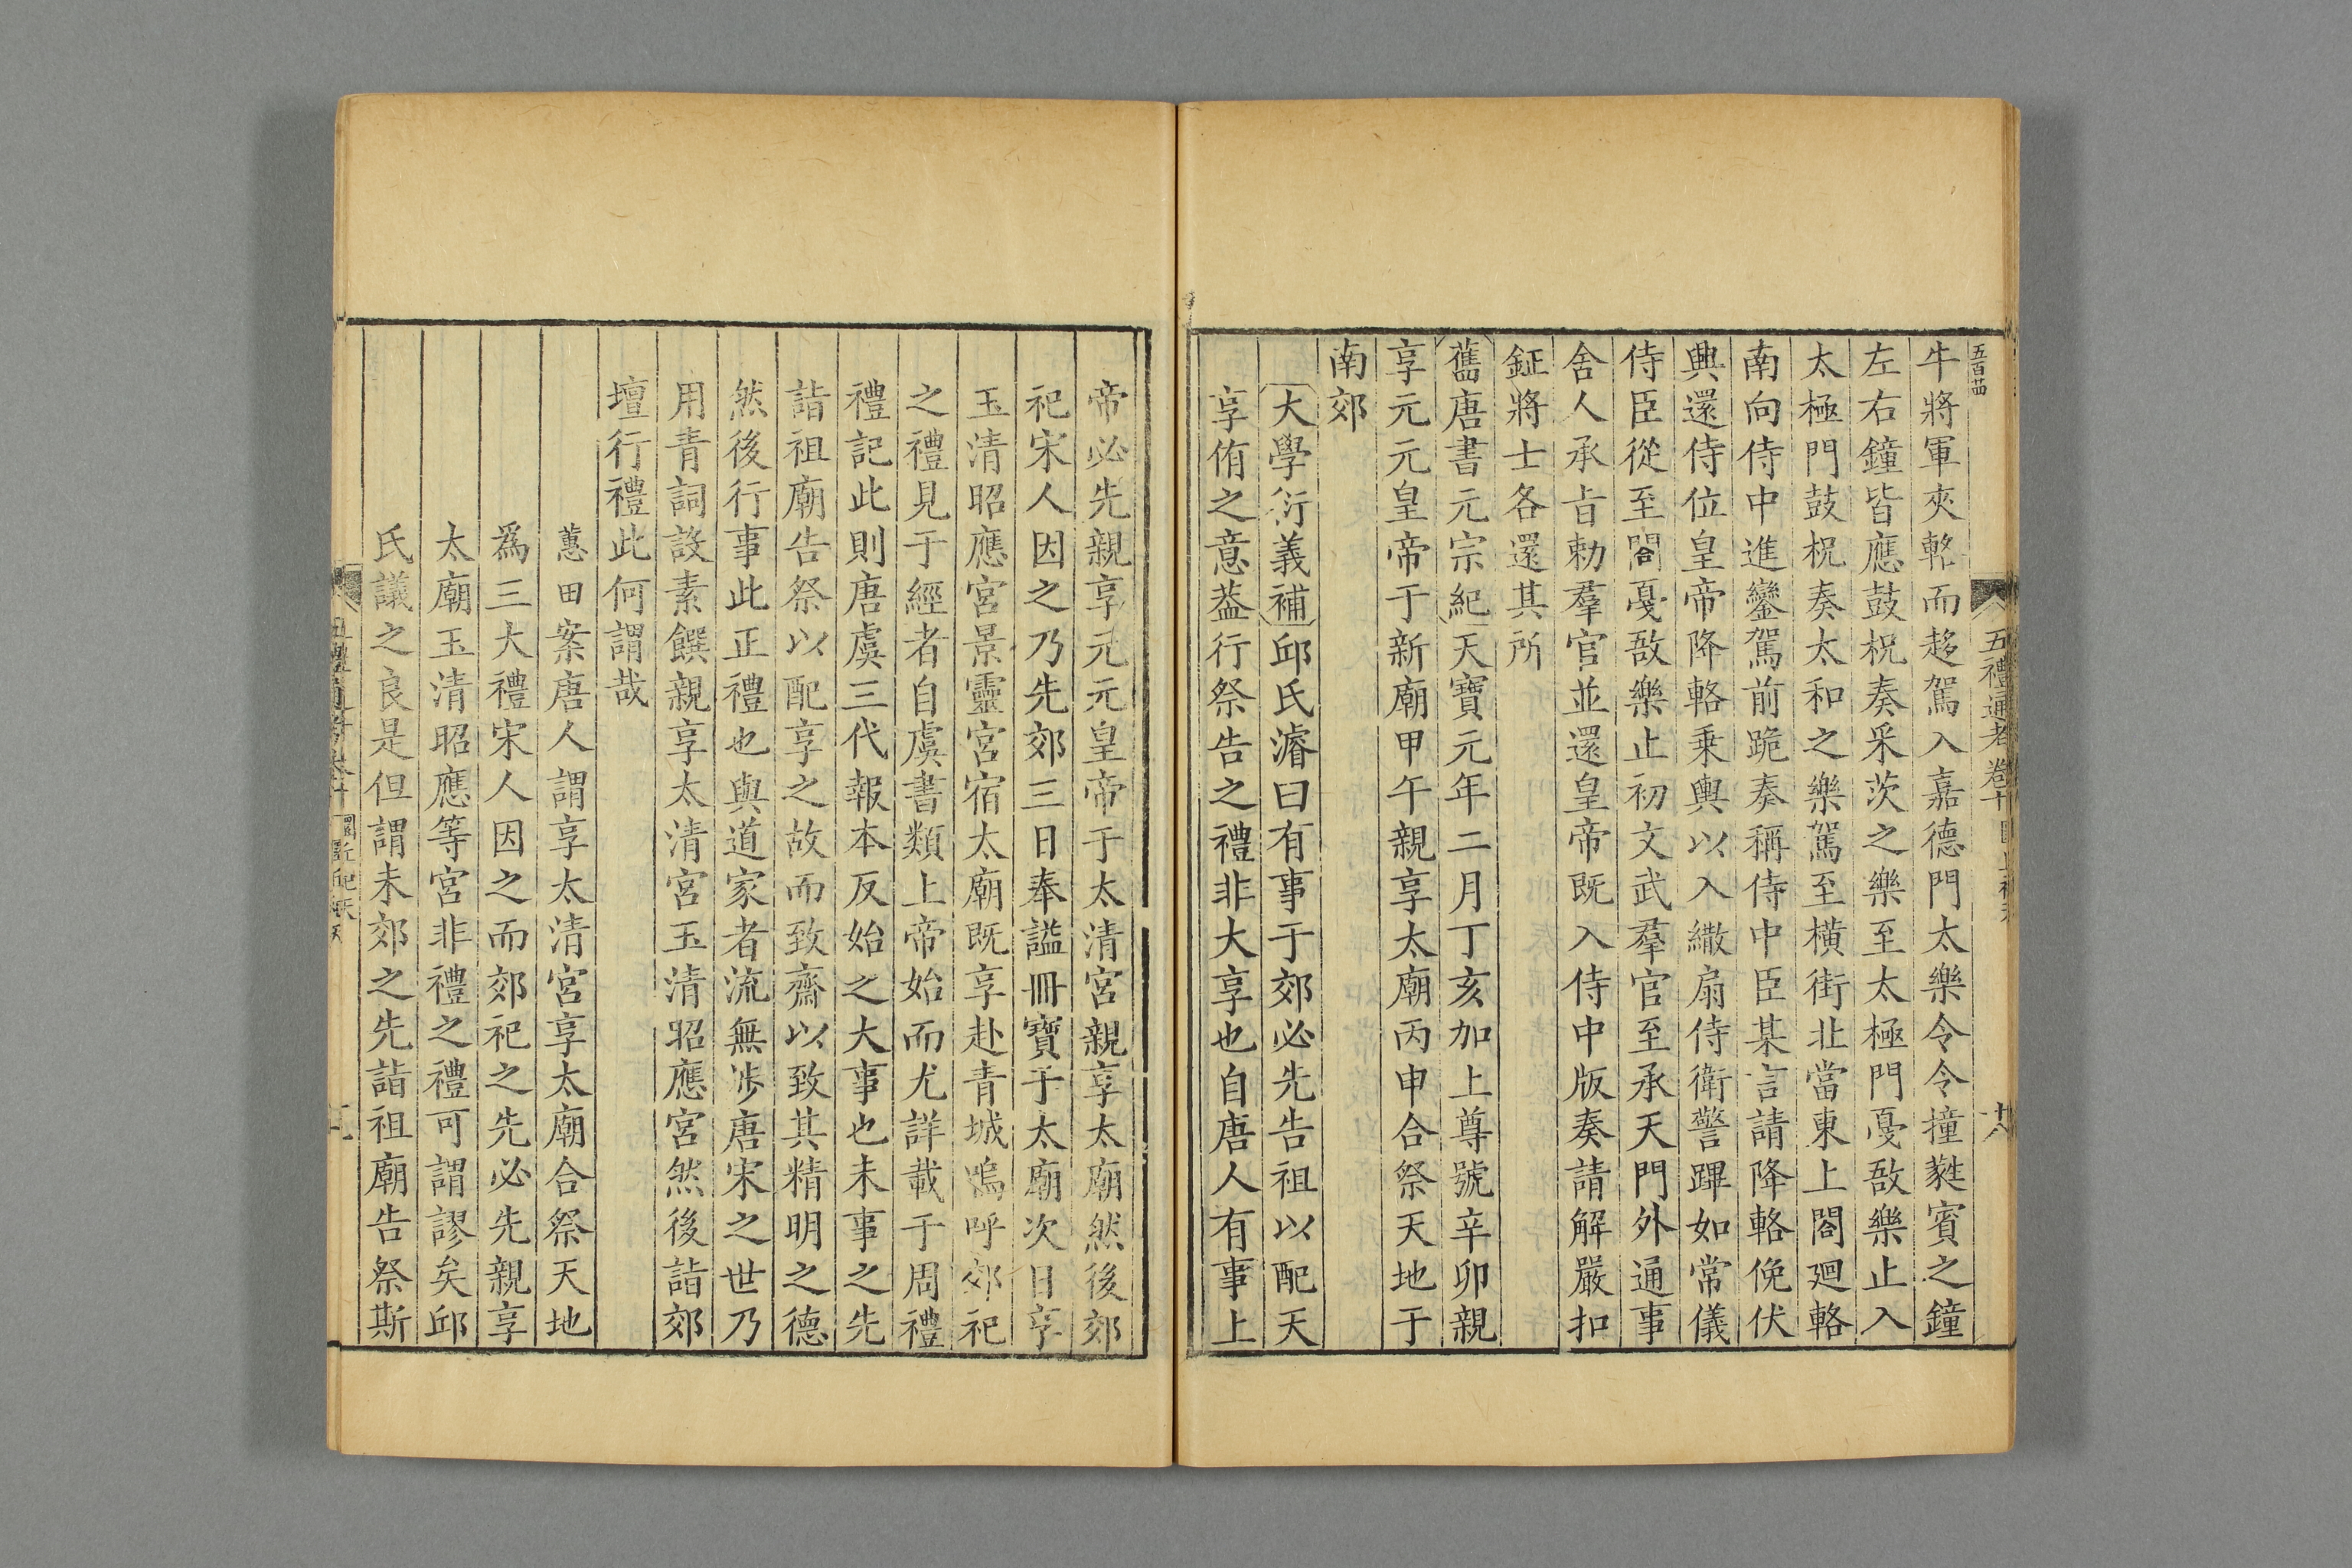 五禮通考卷十
十八
牛將軍夾輅而趍駕入嘉德門太樂令令撞蕤賓之鐘
左右鐘皆應鼓柷奏采茨之樂至太極門戞敔樂止入
太極門鼓柷奏太和之樂駕至橫街北當東上閤廻輅
南向侍中進鑾駕前跪奏稱侍中臣某言請降輅俛伏
興還侍位皇帝降輅乗輿以入繖扇侍衛警蹕如常儀
侍臣從至閤戞敔樂止初文武羣官至承天門外通事
舍人承㫖勅羣官並還皇帝既入侍中版奏請解嚴扣
鉦將士各還其所
舊唐書元宗紀天寶元年二月丁亥加上尊號辛卯親
享元元皇帝于新廟甲午親享太廟丙申合祭天地于
南郊
大學衍義補邱氏濬曰有事于郊必先告祖以配天
享侑之意葢行祭告之禮非大享也自唐人有事上
帝必先親享元元皇帝于太清宮親享太廟然後郊
祀宋人因之乃先郊三日奉謚冊寶于太廟次日享
玉清昭應宮景靈宮宿太廟既享赴青城嗚呼郊祀
之禮見于經者自虞書類上帝始而尤詳載于周禮
禮記此則唐虞三代報本反始之大事也未事之先
詣祖廟告祭以配享之故而致齋以致其精明之德
然後行事此正禮也與道家者流無涉唐宋之世乃
用青詞設素饌親享太清宮玉清昭應宮然後詣郊
壇行禮此何謂哉
蕙田案唐人謂享太清宮享太廟合祭天地
爲三大禮宋人因之而郊祀之先必先親享
太廟玉清昭應等宮非禮之禮可謂謬矣邱
氏議之良是但謂未郊之先詣祖廟告祭斯